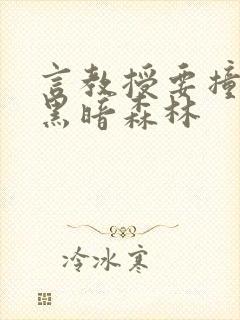 言教授要撞
黑暗森林
冷冰寒